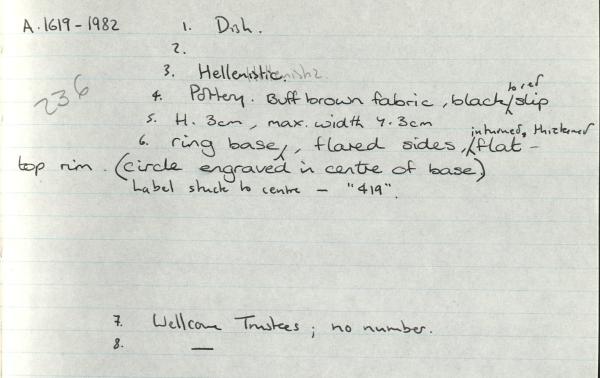 A.1619-1982
1. Dish.
2.
3. Hellenistic.
236
4. Pottery. Buff brown fabric, black to red slip
5. H. 3cm, max. width 7.3cm
6. ring base, flared sides, inturned, thickened flat-
top rim. (circle engraved in centre of base)
Label stuck to centre - "419".
7. Wellcome Trustees; no number.
8. —